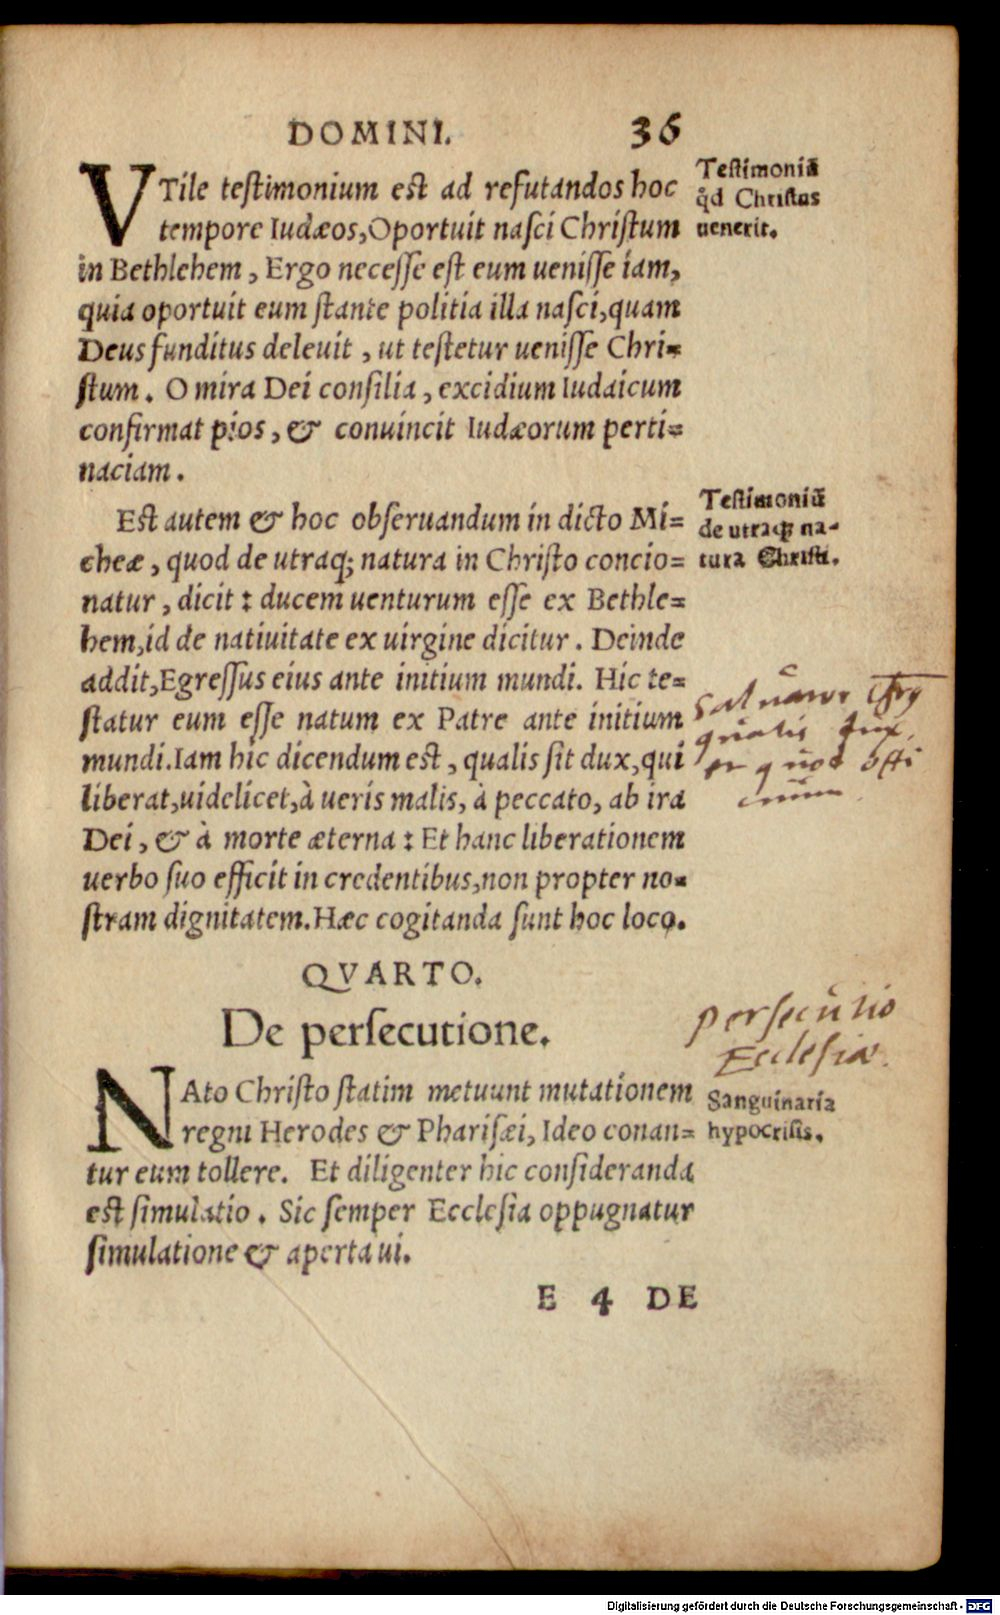 DOMINI. 36
VTile testimonium est ad refutandos hoc
tempore Iudæos,Oportuit nasci Christum
in Bethlehem, Ergo necesse est eum uenisse iam,
quia oportuit eum stante politia illa nasci,quam
Deus funditus deleuit, ut testetur uenisse Chri=
stum. O mira Dei consilia, excidium Iudaicum
confirmat pios, & conuincit Iudæorum perti=
naciam.
Testimoniū
qd Christus
uenerit.
Est autem & hoc obseruandum in dicto Mi=
cheæ, quod de utraq; natura in Christo concio=
natur, dicit: ducem uenturum esse ex Bethle=
hem,id de natiuitate ex uirgine dicitur. Deinde
addit,Egressus eius ante initium mundi. Hic te=
statur eum esse natum ex Patre ante initium
mundi.Iam hic dicendum est, qualis sit dux,qui
liberat,uidelicet,à ueris malis, à peccato, ab ira
Dei, & à morte æterna: Et hanc liberationem
uerbo suo efficit in credentibus,non propter no=
stram dignitatem.Hæc cogitanda sunt hoc loco.
Testimoniū
de utraq; na-
tura Christi.
qualis dux
quod offi
cium
QVARTO.
De persecutione.
NAto Christo statim metuunt mutationem
regni Herodes & Pharisæi, Ideo conan=
tur eum tollere. Et diligenter hic consideranda
est simulatio. Sic semper Ecclesia oppugnatur
simulatione & aperta ui.
persecutio
Ecclesiæ.
Sanguinaria
hypocrisis.
E 4 DE
Digitalisierung gefördert durch die Deutsche Forschungsgemeinschaft - DFG